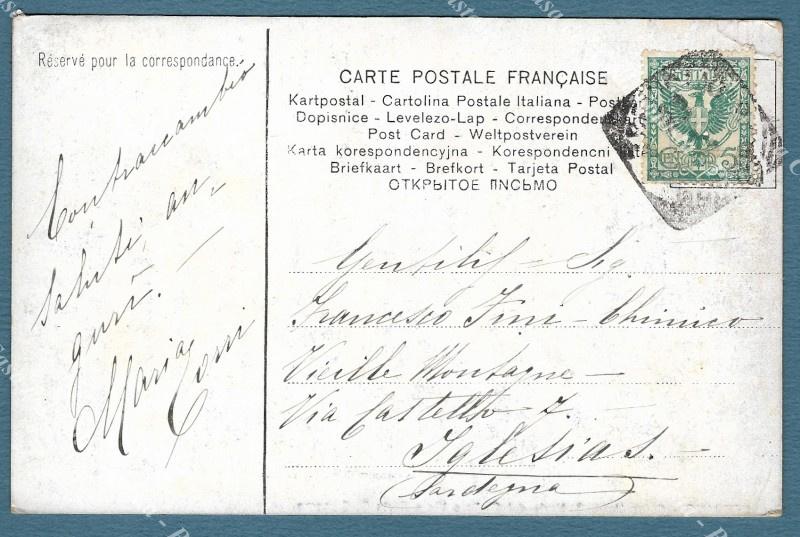 Réservé pour la correspondance.
Contracambio
saluti, au-
guri.
Maria
CARTE POSTALE FRANÇAISE
Kartpostal - Cartolina Postale Italiana - Post
Dopisnice - Levelezo-Lap - Correspondenzkarte
Post Card - Weltpostverein
Karta korespondencyjna - Korespondencni
Briefkaart - Brefkort - Tarjeta Postal
ОТКРЫТОЕ ПИСЬМО
5
Sig
Francesco Fini - Chimico
Vieille Montagne -
Via Castello 7. -
Iglesias. -
(Sardegna)